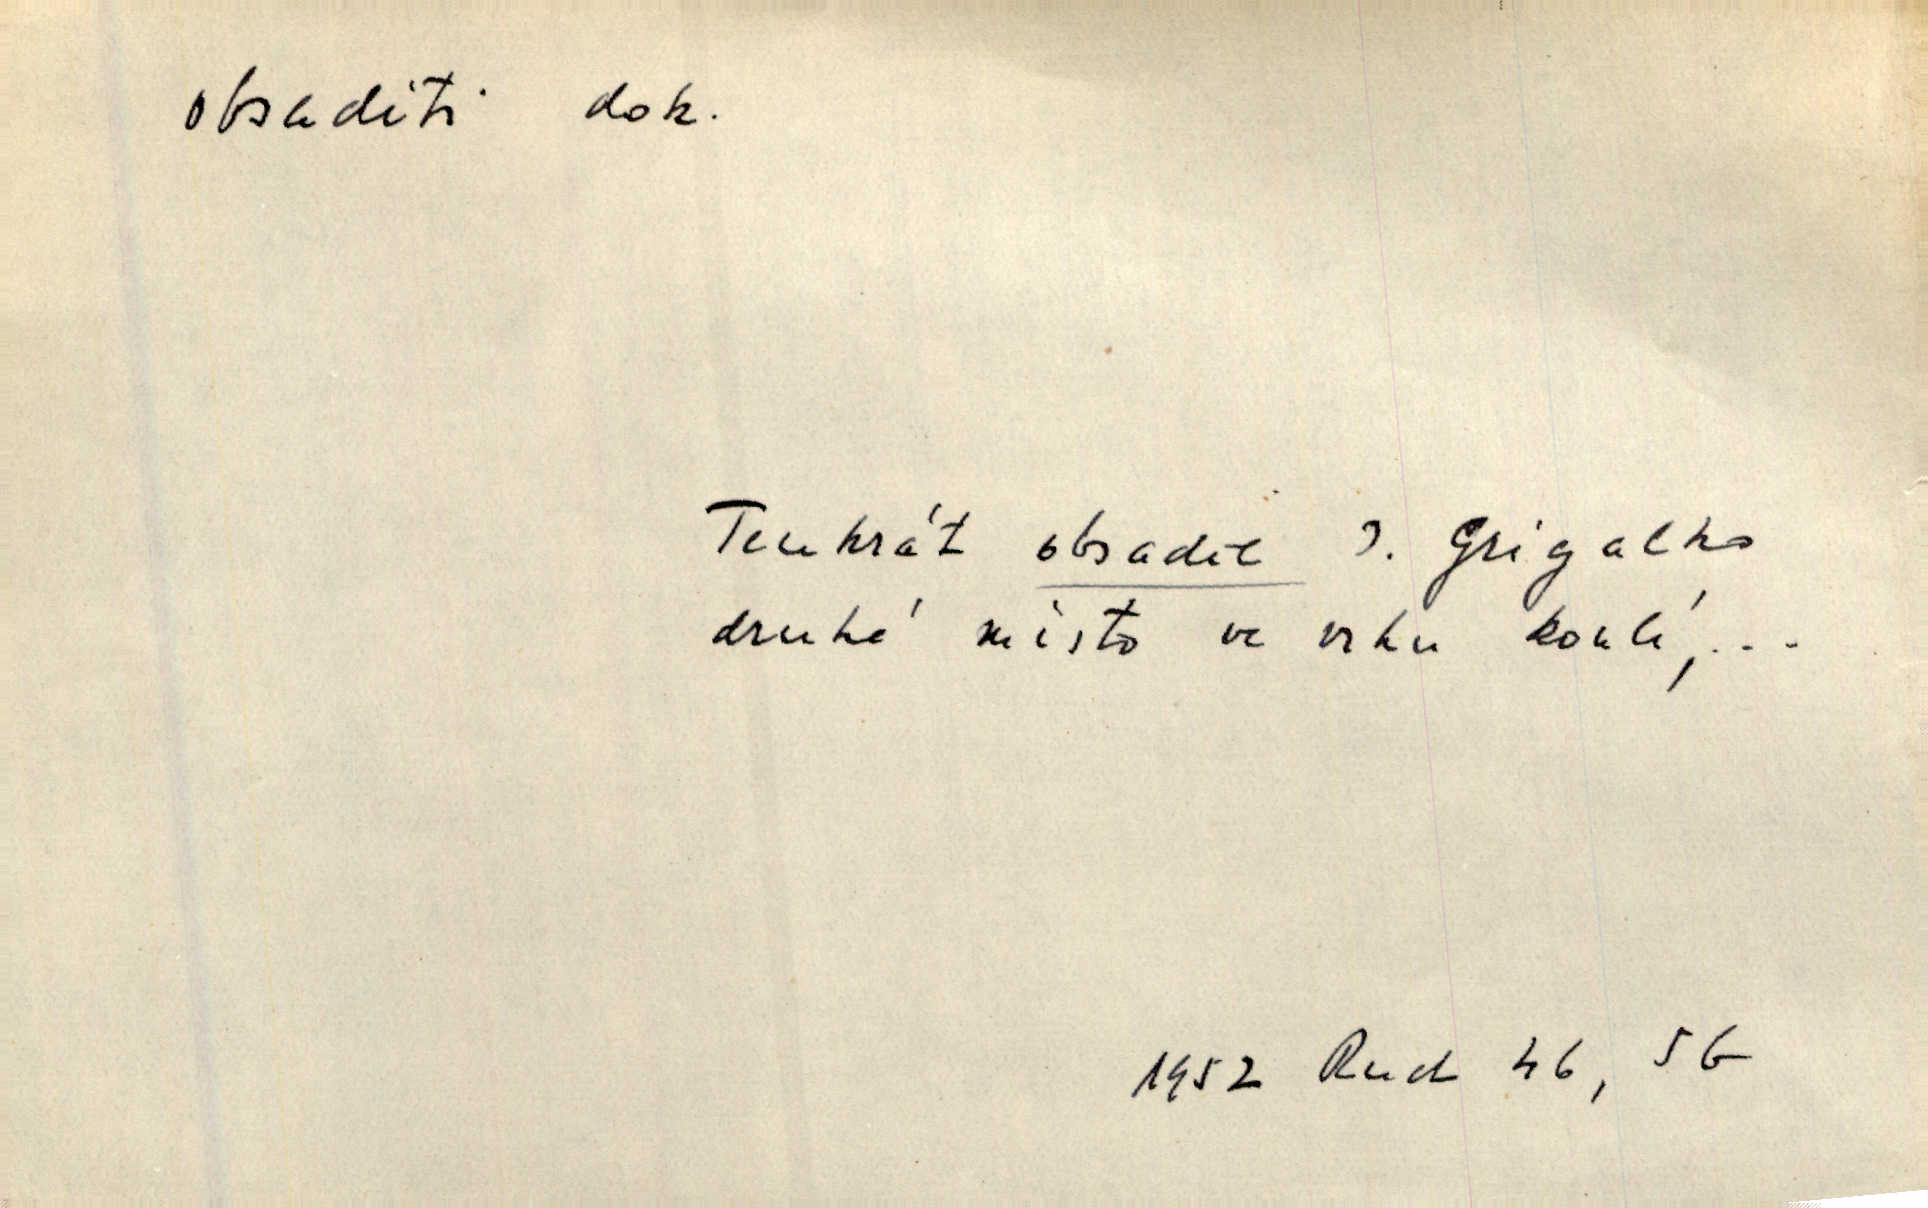 obsaditi dok.
Tenkrát obsadil J. Grigalko
druhé místo ve vrhu koulí,...
1952 Rud 46, 5b